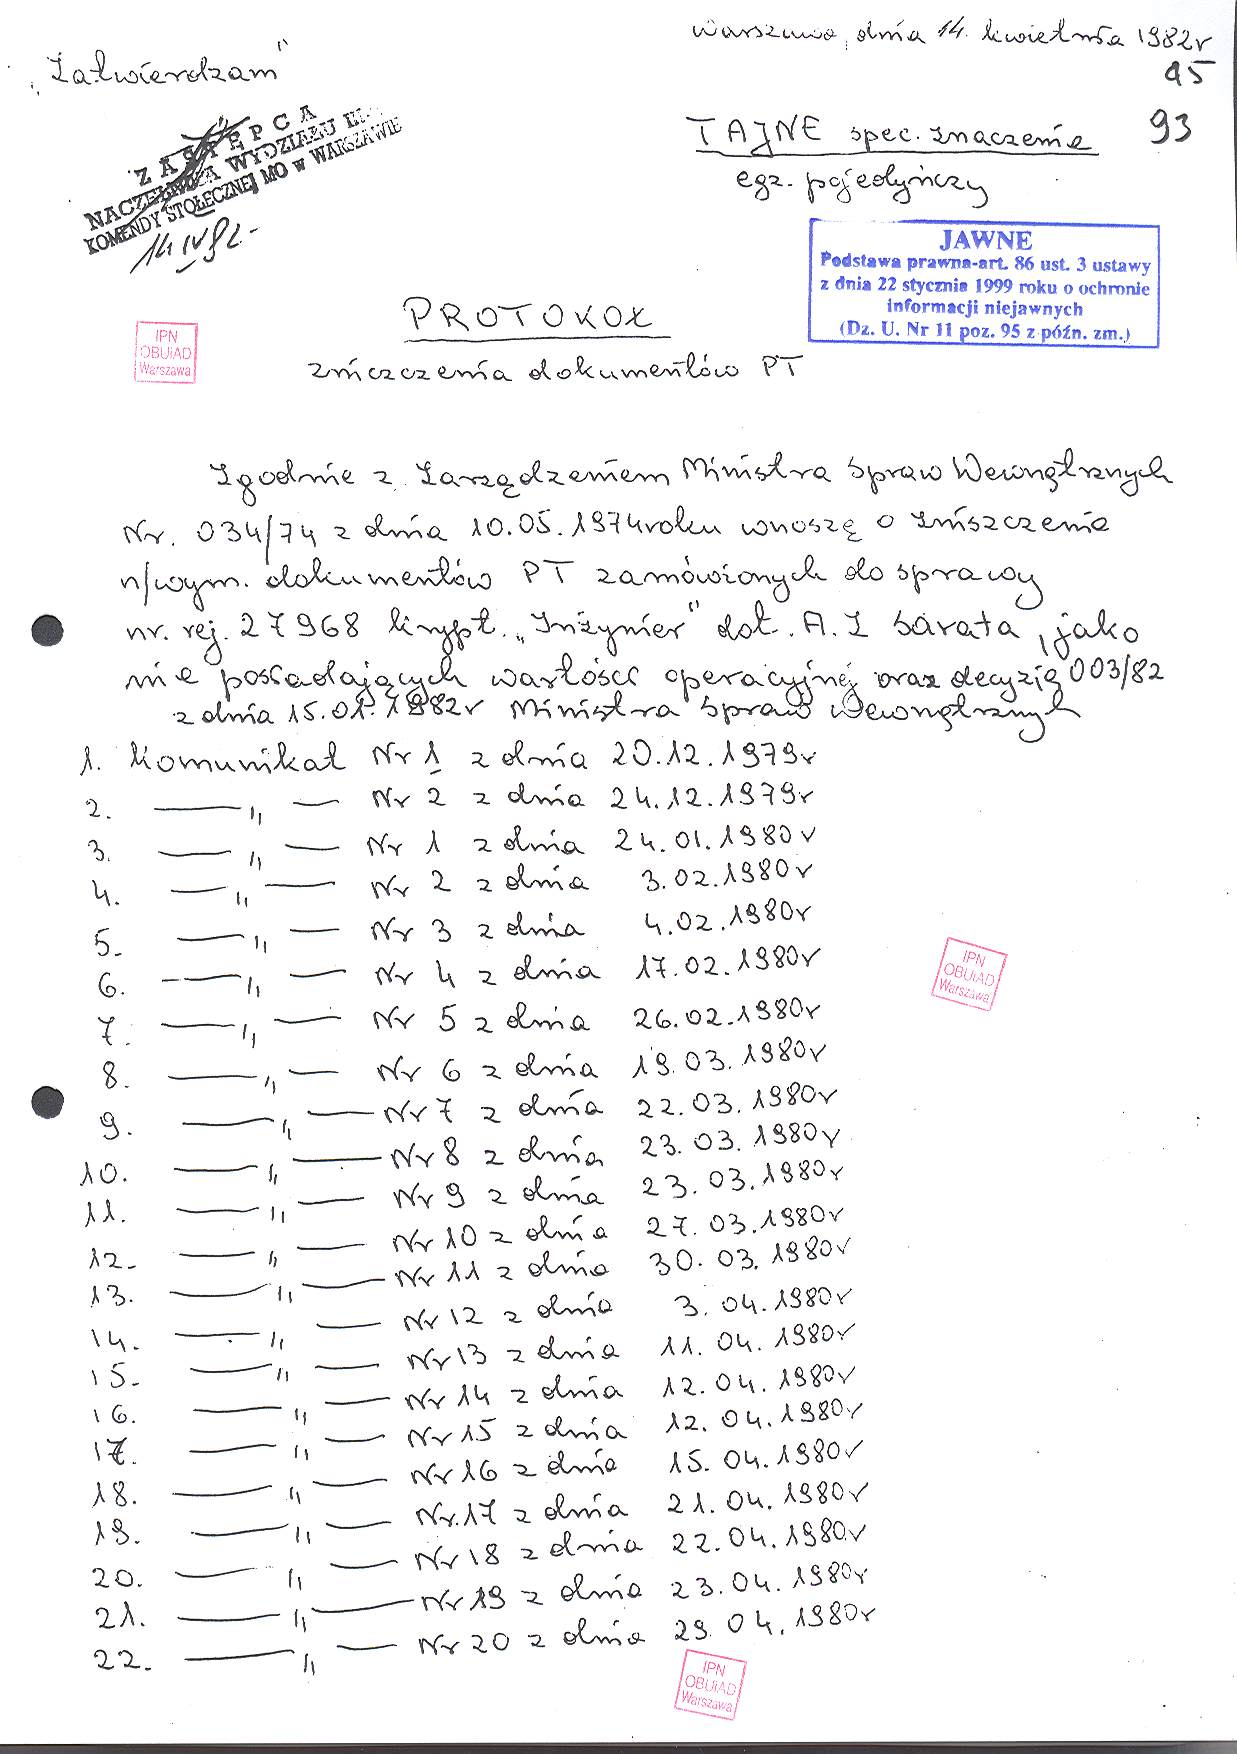 Warszawa, dnia 14. kwietnia 1982r
95
„Zatwierdzam"
93
TAJNE spec. znaczenie
egz. pojedyńczy
ZASTĘPCA
NACZELNIKA WYDZIAŁU III-
KOMENDY STOŁECZNEJ MO w WARSZAWIE
14 IV 82-
JAWNE
Podstawa prawna-art. 86 ust. 3 ustawy
z dnia 22 stycznia 1999 roku o ochronie
informacji niejawnych
(Dz. U. Nr 11 poz. 95 z późn. zm.)
PROTOKÓŁ
IPN
OBUiAD
Warszawa
zniszczenia dokumentów PT
Zgodnie z Zarządzeniem Ministra Spraw Wewnętrznych
Nr. 034/74 z dnia 10.05.1974roku wnoszę o zniszczenie
n/wym. dokumentów PT zamówionych do sprawy
nr. rej. 27968 krypt. „Inżynier" dot. A. Z Sarata, jako
nie possadających wartości operacyjnej oraz decyzją 003/82
z dnia 15.01.1982r Ministra Spraw Wewnętrznych
1. Komunikat Nr 1 z dnia 20.12.1979r
2. —— „ — Nr 2 z dnia 24.12.1979r
3. —— „ — Nr 1 z dnia 24.01.1980r
4. —— „ — Nr 2 z dnia 3.02.1980r
5. —— „ — Nr 3 z dnia 4.02.1980r
6. —— „ — Nr 4 z dnia 17.02.1980r
7. —— „ — Nr 5 z dnia 26.02.1980r
8. —— „ — Nr 6 z dnia 19.03.1980r
9. —— „ — Nr 7 z dnia 22.03.1980r
10. —— „ — Nr 8 z dnia 23.03.1980r
11. —— „ — Nr 9 z dnia 23.03.1980r
12. —— „ — Nr 10 z dnia 27.03.1980r
13. —— „ — Nr 11 z dnia 30.03.1980r
14. —— „ — Nr 12 z dnia 3.04.1980r
15. —— „ — Nr 13 z dnia 11.04.1980r
16. —— „ — Nr 14 z dnia 12.04.1980r
17. —— „ — Nr 15 z dnia 12.04.1980r
18. —— „ — Nr 16 z dnia 15.04.1980r
19. —— „ — Nr.17 z dnia 21.04.1980r
20. —— „ — Nr 18 z dnia 22.04.1980r
21. —— „ — Nr 19 z dnia 23.04.1980r
22. —— „ — Nr 20 z dnia 29.04.1980r
IPN
OBUiAD
Warszawa
IPN
OBUiAD
Warszawa